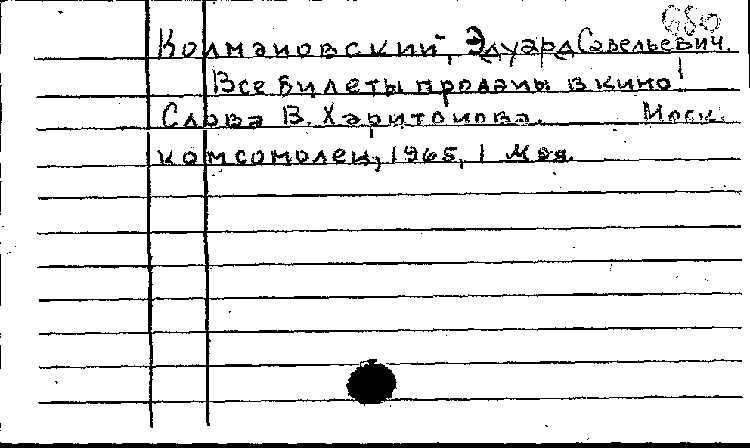 680
Колмановский, Эдуард Савельевич.
Все билеты проданы в кино!
Слова В. Харитонова. Моск.
комсомолец, 1965, 1 мая.